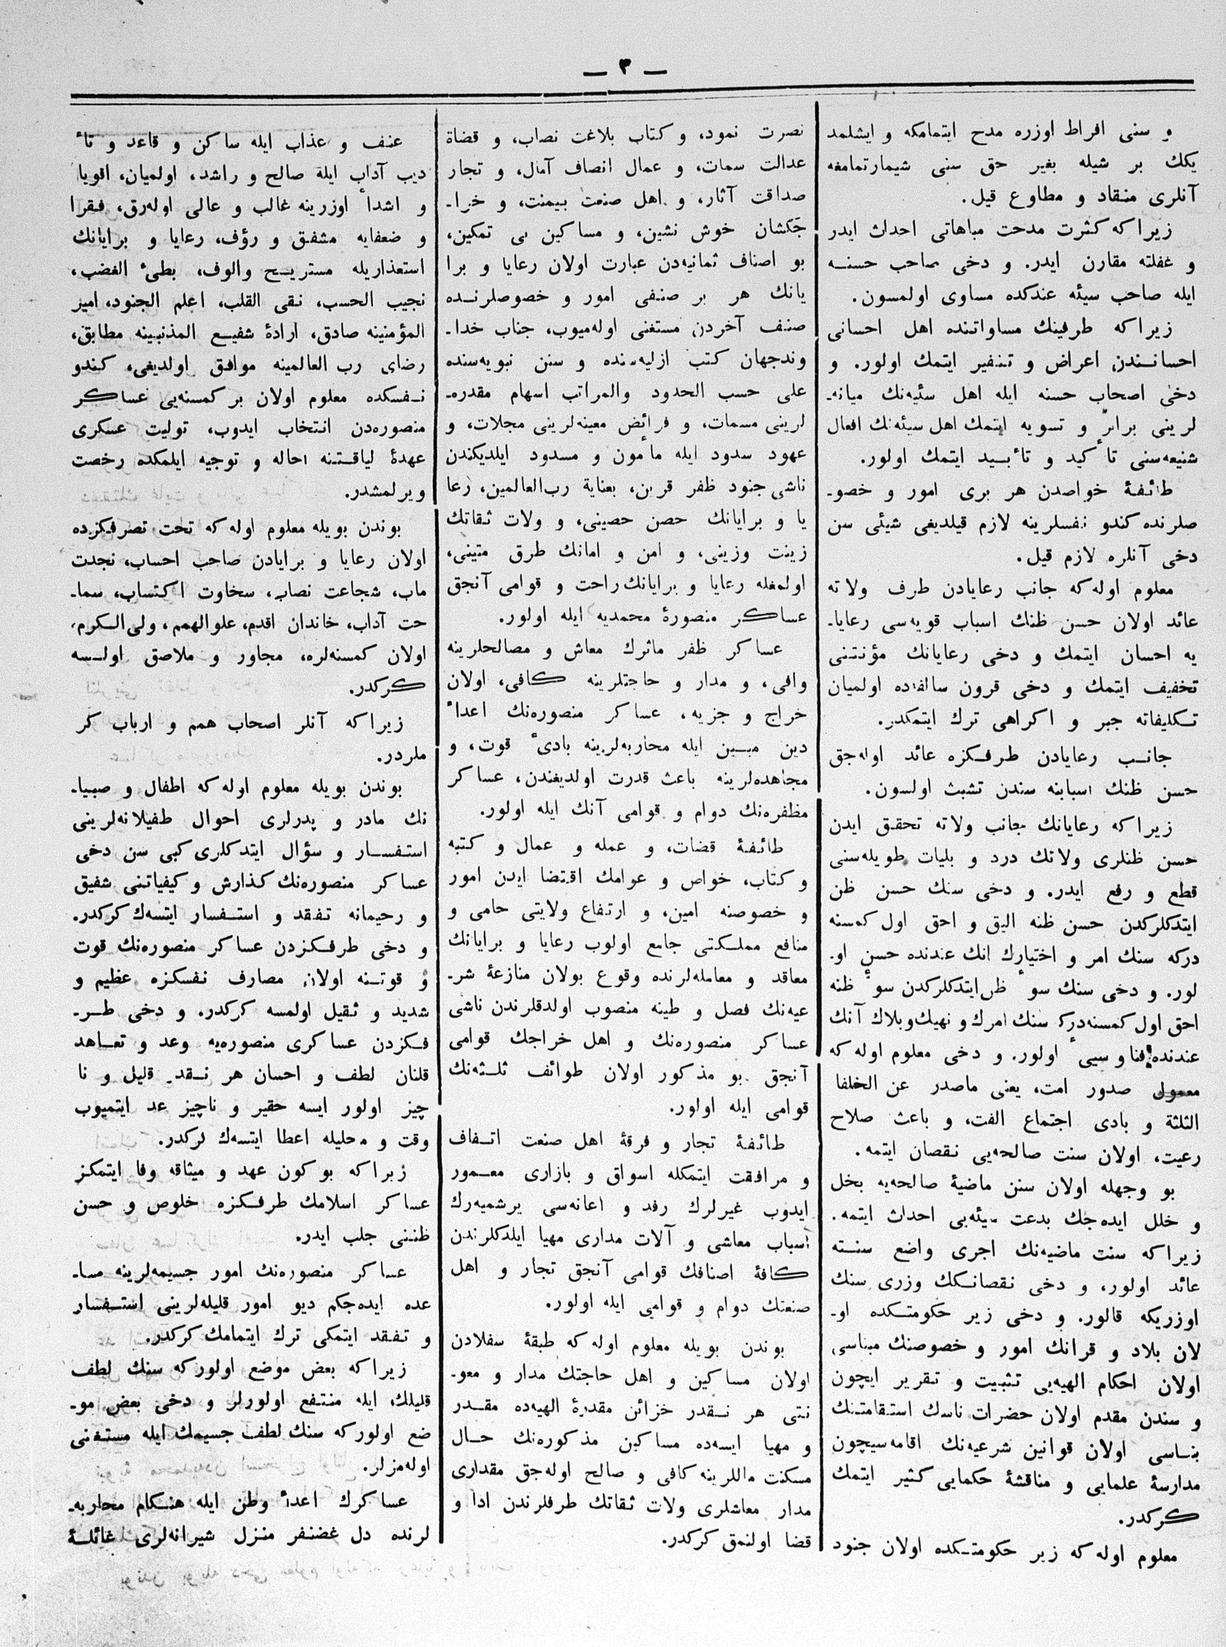 — ٣ —
و سنی افراط اوزره مدح ایتمامکه و ایشلمد
یکك بر شیله بغیر حق سنی شیمارتمامغه
آنلری منقاد و مطاوع قیل.
زیرا که کثرت مدحت مباهاتی احداث ایدر
و غفلته مقارن ایدر. و دخی صاحب حسنه
ایله صاحب سیئه عندکده مساوی اولمسون.
زیرا که طرفینك مساواتنده اهل احسانی
احساندن اعراض و تنفیر ایتمك اولور. و
دخی اصحاب حسنه ایله اهل سئیه‌نك میانه‌ـ
لرینی برابر و تسویه ایتمك اهل سیئه‌نك افعال
شنیعه‌سنی تأکید و تأبید ایتمك اولور.
طائفۀ خواصدن هر بری امور و خصوـ
صلرنده کندو نفسلرینه لازم قیلدیغی شیئی سن
دخی آنلره لازم قیل.
معلوم اوله که جانب رعایادن طرف ولاته
عائد اولان حسن ظنك اسباب قویه‌سی رعایاـ
یه احسان ایتمك و دخی رعایانك مؤنتنی
تخفیف ایتمك و دخی قرون سالفه‌ده اولمیان
تکلیفاته جبر و اکراهی ترك ایتمکدر.
جانب رعایادن طرفکزه عائد اوله‌جق
حسن ظنك اسبابنه سندن تشبث اولسون.
زیرا که رعایانك جانب ولاته تحقق ایدن
حسن ظنلری ولاتك درد و بلیات طویله‌سنی
قطع و رفع ایدر. و دخی سنك حسن ظن
ایتدکلرکدن حسن ظنه الیق و احق اول کمسنه
درکه سنك امر و اختیارك انك عندنده حسن اوـ
لور. و دخی سنك سوء ظن ایتدکلرکدن سوء ظنه
احق اول کمسنه‌درکه سنك امرك و نهیك و بلاك آنك
عندنده فنا و سیئ اولور. و دخی معلوم اوله که
معمول صدور امت، یعنی ماصدر عن الخلفا
الثلثة و بادی اجتماع الفت، و باعث صلاح
رعیت، اولان سنت صالحه‌یی نقصان ایتمه.
بو وجهله اولان سنن ماضیۀ صالحه‌یه بخل
و خلل ایده‌جك بدعت سیئه‌یی احداث ایتمه.
زیرا که سنت ماضیه‌نك اجری واضع سنته
عائد اولور، و دخی نقصانکك وزری سنك
اوزریکه قالور. و دخی زیر حکومتکده اوـ
لان بلاد و قرانك امور و خصوصنك مبناسی
اولان احکام الهیه‌یی تثبیت و تقریر ایچون
و سندن مقدم اولان حضرات ناسك استقامتنك
بناسی اولان قوانین شرعیه‌نك اقامه‌سیچون
مدارسۀ علمایی و مناقشۀ حکمایی کثیر ایتمك
کرکدر.
معلوم اوله که زیر حکومتکده اولان جنود
نصرت نمود، و کتاب بلاغت نصاب، و قضاة
عدالت سمات، و عمال انصاف آمال، و تجار
صداقت آثار، و اهل صنعت بیمنت، و خراـ
جکشان خوش نشین، و مساکین بی تمکین،
بو اصناف ثمانیه‌دن عبارت اولان رعایا و برا
یانك هر بر صنفی امور و خصوصلرنده
صنف آخردن مستغنی اوله‌میوب، جناب خداـ
وندجهان کتب ازلیه‌سنده و سنن نبویه‌سنده
علی حسب الحدود والمراتب اسهام مقدره‌ـ
لرینی مسمات، و فرائض معینه‌لرینی مجلات، و
عهود سدود ایله مأمون و مسدود ایلدیکندن
ناشی جنود ظفر قرین، بعنایة رب‌العالمین، رعا
یا و برایانك حصن حصینی، و ولات ثقاتك
زینت وزینی، و امن و امانك طرق متینی،
اولمغله رعایا و برایانك راحت و قوامی آنجق
عساکر منصورۀ محمدیه ایله اولور.
عساکر ظفر ماثرك معاش و مصالحلرینه
وافی، و مدار و حاجتلرینه کافی، اولان
خراج و جزیه، عساکر منصوره‌نك اعداء
دین مبین ایله محاربه‌لرینه بادئ قوت، و
مجاهده‌لرینه باعث قدرت اولدیغندن، عساکر
مظفره‌نك دوام و قوامی آنك ایله اولور.
طائفۀ قضات، و عمله و عمال و کتبه
و کتاب، خواص و عوامك اقتضا ایدن امور
و خصوصنه امین، و ارتفاع ولایتی حامی و
منافع مملکتی جامع اولوب رعایا و برایانك
معاقد و معامله‌لرنده وقوع بولان منازعۀ شرـ
عیه‌نك فصل و طینه منصوب اولدقلرندن ناشی
عساکر منصوره‌نك و اهل خراجك قوامی
آنجق بو مذکور اولان طوائف ثلثه‌نك
قوامی ایله اولور.
طائفۀ تجار و فرقۀ اهل صنعت اتفاف
و مرافقت ایتمکله اسواق و بازاری معمور
ایدوب غیرلرك رفد و اعانه‌سی یرشمیه‌رك
اسباب معاشی و آلات مداری مهیا ایلدکلرندن
کافۀ اصنافك قوامی آنجق تجار و اهل
صنعتك دوام و قوامی ایله اولور.
بوندن بویله معلوم اوله که طبقۀ سفلادن
اولان مساکین و اهل حاجتك مدار و معوـ
نتی هر نقدر خزائن مقدرۀ الهیه‌ده مقدر
و مهیا ایسه‌ده مساکین مذکوره‌نك حال
مسکنت ماللرینه کافی و صالح اوله‌جق مقداری
مدار معاشلری ولات ثقاتك طرفلرندن ادا و
قضا اولنمق کرکدر.
عنف و عذاب ایله ساکن و قاعد و تأ
دیب آداب ایله صالح و راشد، اولمیان، اقویا
و اشداء اوزرینه غالب و عالی اوله‌رق، فقرا
و ضعفایه مشفق و رؤف، رعایا و برایانك
استعذاریله مستریح والوف، بطیء الغضب،
نجیب الحسب، نقی القلب، اعلم الجنود، امیر
المؤمنینه صادق، ارادۀ شفیع المذنبینه مطابق،
رضای رب العالمینه موافق اولدیغی، کندو
نفسکده معلوم اولان بر کمسنه‌یی عساکر
منصوره‌دن انتخاب ایدوب، تولیت عسکری
عهدۀ لیاقتنه احاله و توجیه ایلمکده رخصت
ویرلمشدر.
بوندن بویله معلوم اوله که تحت تصرفکزده
اولان رعایا و برایادن صاحب احساب، نجدت
ماب، شجاعت نصاب، سخاوت اکتساب، سماـ
حت آداب، خاندان اقدم، علوالهمم، ولی‌الکرم،
اولان کمسنه‌لره، مجاور و ملاصق اولسه
کرکدر.
زیرا که آنلر اصحاب همم و ارباب کر
ملردر.
بوندن بویله معلوم اوله که اطفال و صبیاـ
نك مادر و پدرلری احوال طفیلانه‌لرینی
استفسار و سؤال ایتدکلری کبی سن دخی
عساکر منصوره‌نك کذارش و کیفیاتنی شفیق
و رحیمانه تفقد و استفسار ایتسه‌ك کرکدر.
و دخی طرفکزدن عساکر منصوره‌نك قوت
و قوتنه اولان مصارف نفسکزه عظیم و
شدید و ثقیل اولمسه کرکدر. و دخی طرـ
فکزدن عساکری منصوره‌یه وعد و تعاهد
قلنان لطف و احسان هر نقدر قلیل و نا
چیز اولور ایسه حقیر و ناچیز عد ایتمیوب
وقت و محلیله اعطا ایتسه‌ك کرکدر.
زیرا که بوکون عهد و میثاقه وفا ایتمکز
عساکر اسلامك طرفکزه خلوص و حسن
ظننی جلب ایدر.
عساکر منصوره‌نك امور جسیمه‌لرینه مساـ
عده ایده‌جکم دیو امور قلیله‌لرینی استفسار
و تفقد ایتمکی ترك ایتمامك کرکدر.
زیرا که بعض موضع اولورکه سنك لطف
قلیلك، ایله منتفع اولورلر و دخی بعض موـ
ضع اولورکه سنك لطف جسیمك ایله مستغنی
اوله‌مزلر.
عساکرك اعداء وطن ایله هنکام محاربه‌ـ
لرنده دل غضنفر منزل شیرانه‌لری غائلۀ